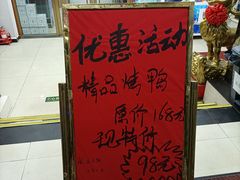 优惠活动
精品烤鸭
原价168元
现特价
98元